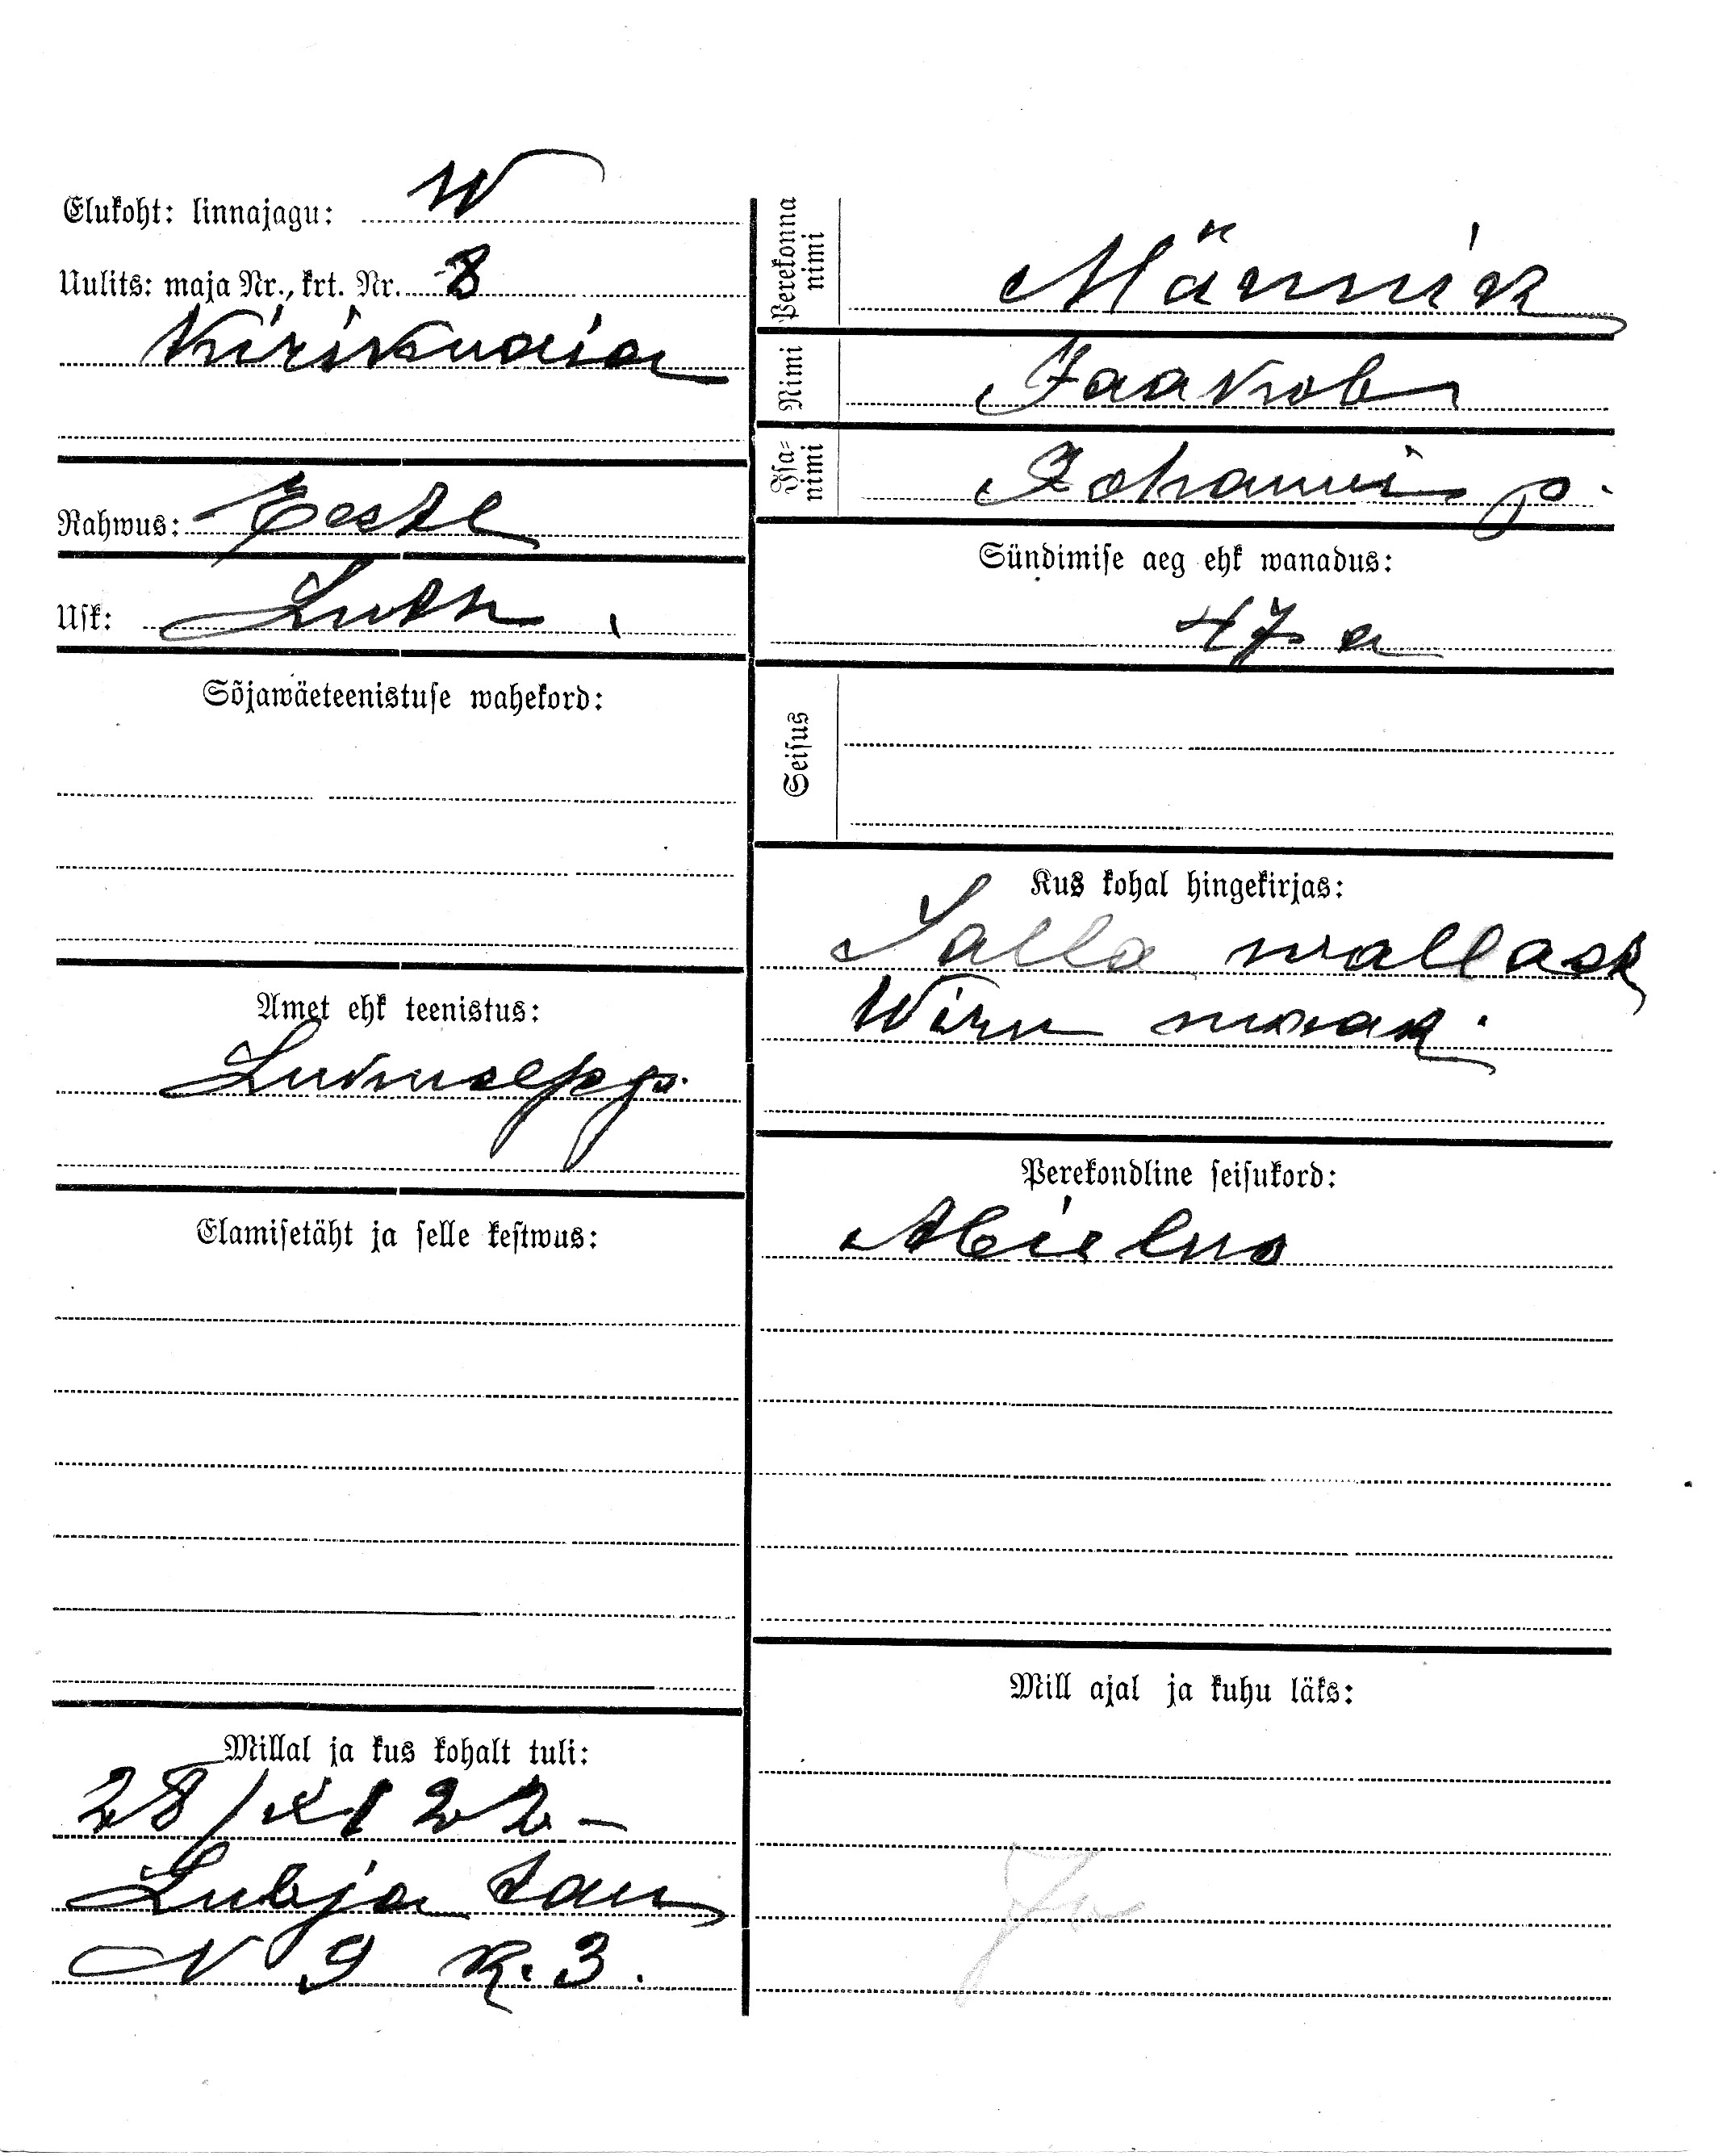 Elukoht: linnajagu: W
Uulits: maja Nr., krt. Nr. 8
Kirikuaia
Rahwus: Eestl
Usk: Luth.
Sõjawäeteenistuse wahekord:
Amet ehk teenistus:
Lukusepp.
Elamisetäht ja selle kestwus:
Millal ja kus kohalt tuli:
28/XI 22 –
Lubja tän
N 9 k. 3.
Perekonna nimi
Männik
Nimi
Jaakob
Isa-nimi
Johanni p.
Sündimise aeg ehk wanadus:
47 a
Seisus
Kus kohal hingekirjas:
Salla wallast
Wiru maak.
Perekondline seisukord:
Abielus
Mill ajal ja kuhu läks: